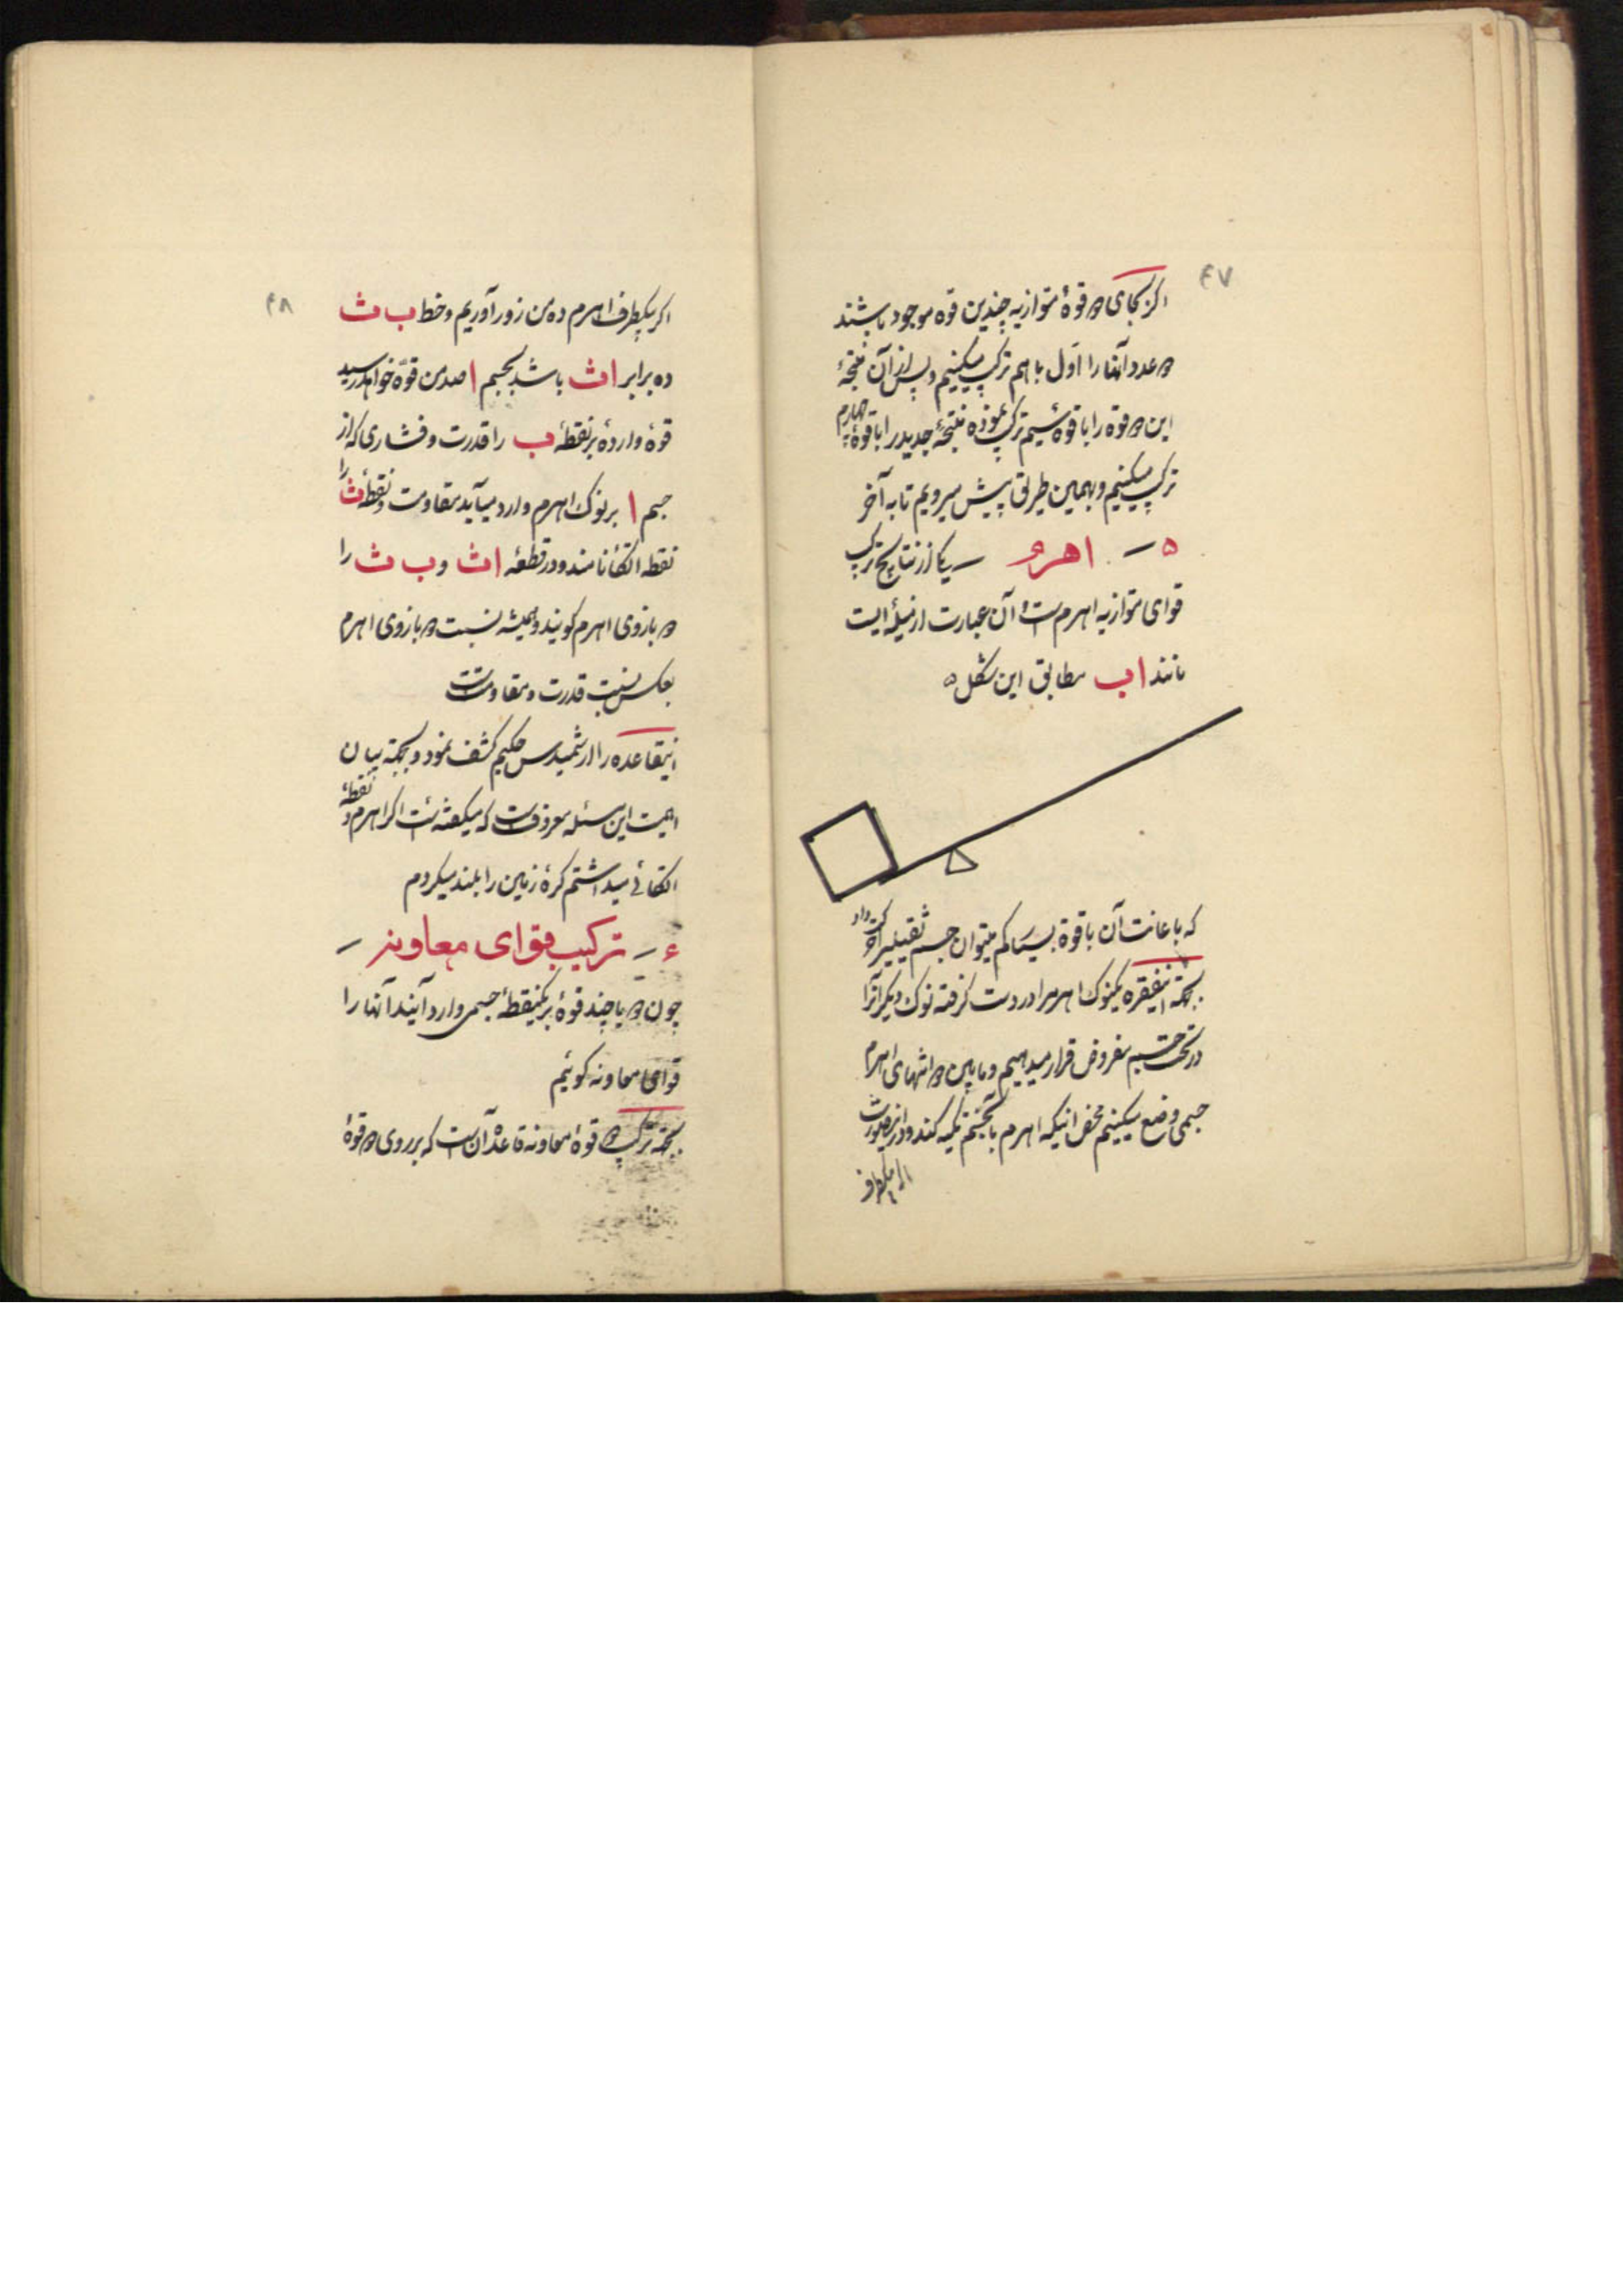 ۴۷
اگر بجای دو قوهٔ متوازیه چندین قوه موجود باشند
دو عدد آنها را اول با هم ترکیب میکنیم و پس از آن نتیجهٔ
این دو قوه را با قوهٔ سیم ترکیب نموده نتیجهٔ جدید را با قوهٔ چهارم
ترکیب میکنیم و بهمین طریق پیش میرویم تا به آخر
۵ – اهرم – یکی از نتایج ترکیب
قوای متوازیه اهرم است و آن عبارت از میلهٔ ایست
مانند ا ب مطابق این شکل ۵
که باعانت آن با قوهٔ بسیار کم میتوان جسم ثقیلی را حرکت داد
بجهة اینفقره یکنوک اهرم را در دست گرفته نوک دیگر آنرا
در تحت جسم مفروض قرار میدهیم و مابین دو انتهای اهرم
جسمی وضع میکنیم محض اینکه اهرم بآنجسم تکیه کند و در اینصورت
اگر بیکطرف
۴۸
اگر بیکطرف اهرم ده من زور آوریم و خط ب ث
ده برابر ا ث باشد بجسم ا صد من قوّه خواهد رسید
قوهٔ واردهٔ بر نقطهٔ ب را قدرت و فشاری که از
جسم ا بر نوک اهرم وارد میآید مقاومت و نقطهٔ ث را
نقطه اتکا نامند و دو قطعهٔ ا ث و ب ث را
دو بازوی اهرم گویند و همیشه نسبت دو بازوی اهرم
بعکس نسبت قدرت و مقاومتست
اینقاعده را ارشمیدس حکیم کشف نمود و بجهة بیان
اهمیت این مسئله معروفست که میگفته است اگر اهرم و نقطهٔ
اتکائی میداشتم کرهٔ زمین را بلند میکردم
۶ – ترکیب قوای معاونه –
چون دو یا چند قوهٔ بر یکنقطهٔ جسمی وارد آیند آنها را
قوای معاونه گوئیم
بجهة ترکیب دو قوهٔ معاونه قاعده آن است که بر روی دو قوهٔ